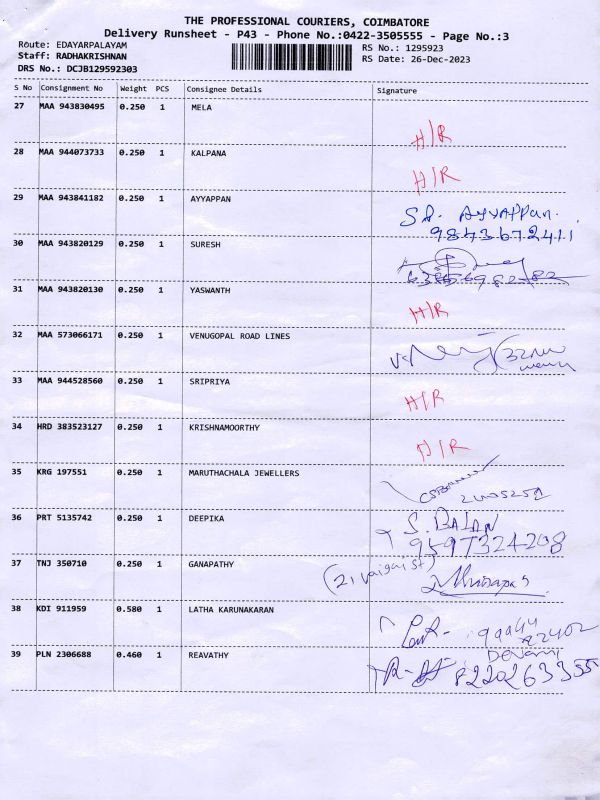 THE PROFESSIONAL COURIERS, COIMBATORE
Delivery Runsheet - P43 - Phone No.:0422-3505555 - Page No.:3
Route: EDAYARPALAYAM
Staff: RADHAKRISHNAN
DRS No.: DCJB129592303
RS No.: 1295923
RS Date: 26-Dec-2023
S No Consignment No Weight PCS Consignee Details Signature
27 MAA 943830495 0.250 1 MELA H/R
28 MAA 944073733 0.250 1 KALPANA H/R
29 MAA 943841182 0.250 1 AYYAPPAN Sd. AYYAPPan.
9843672411
30 MAA 943820129 0.250 1 SURESH
31 MAA 943820130 0.250 1 YASWANTH H/R
32 MAA 573066171 0.250 1 VENUGOPAL ROAD LINES
33 MAA 944528560 0.250 1 SRIPRIYA H/R
34 HRD 383523127 0.250 1 KRISHNAMOORTHY H/R
35 KRG 197551 0.250 1 MARUTHACHALA JEWELLERS
36 PRT 5135742 0.250 1 DEEPIKA S. BALAN
9597324208
37 TNJ 350710 0.250 1 GANAPATHY
38 KDI 911959 0.580 1 LATHA KARUNAKARAN 99944
82402
39 PLN 2306688 0.460 1 REAVATHY
8220263355